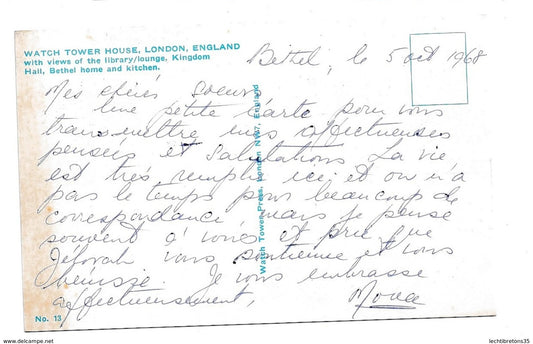 WATCH TOWER HOUSE, LONDON, ENGLAND
with views of the library/lounge, Kingdom
Hall, Bethel home and kitchen.
Béthel, le 5 oct 1968
Mes chères Soeurs
Une petite carte pour vous
transmettre mes affectueuses
pensées et Salutations La vie
est très remplie ici et on n'a
pas le temps pour beaucoup de
correspondance, mais je pense
souvent à vous et prie que
Jéhovah vous soutienne et vous
bénisse. Je vous embrasse
affectueusement,
Watch Tower Press, London NW7, England
No. 13
www.delcampe.net
lechtibretons35